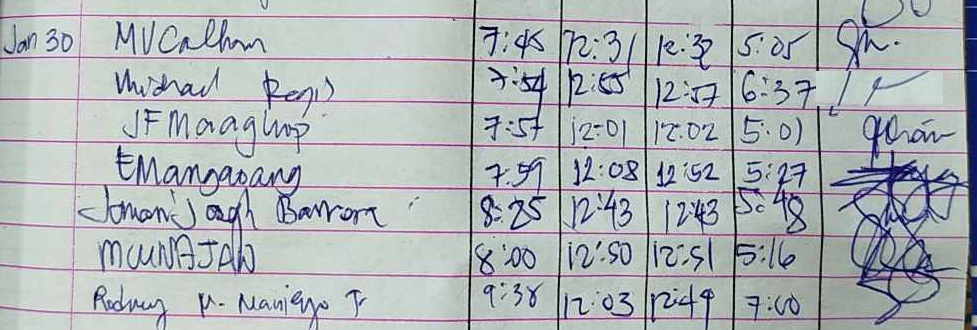 Jan 30 MVCalham 7:45 12:31 12:32 5:05
Michael Regis 7:54 12:55 12:57 6:37
JFMaaghop 7:57 12:01 12:02 5:01
EMangaoang 7:59 12:08 12:52 5:27
Joseph Barrora 8:25 12:43 12:43 5:48
8:00 12:50 12:51 5:16
Rodney M. Maniego Jr 9:38 12:03 12:49 7:00